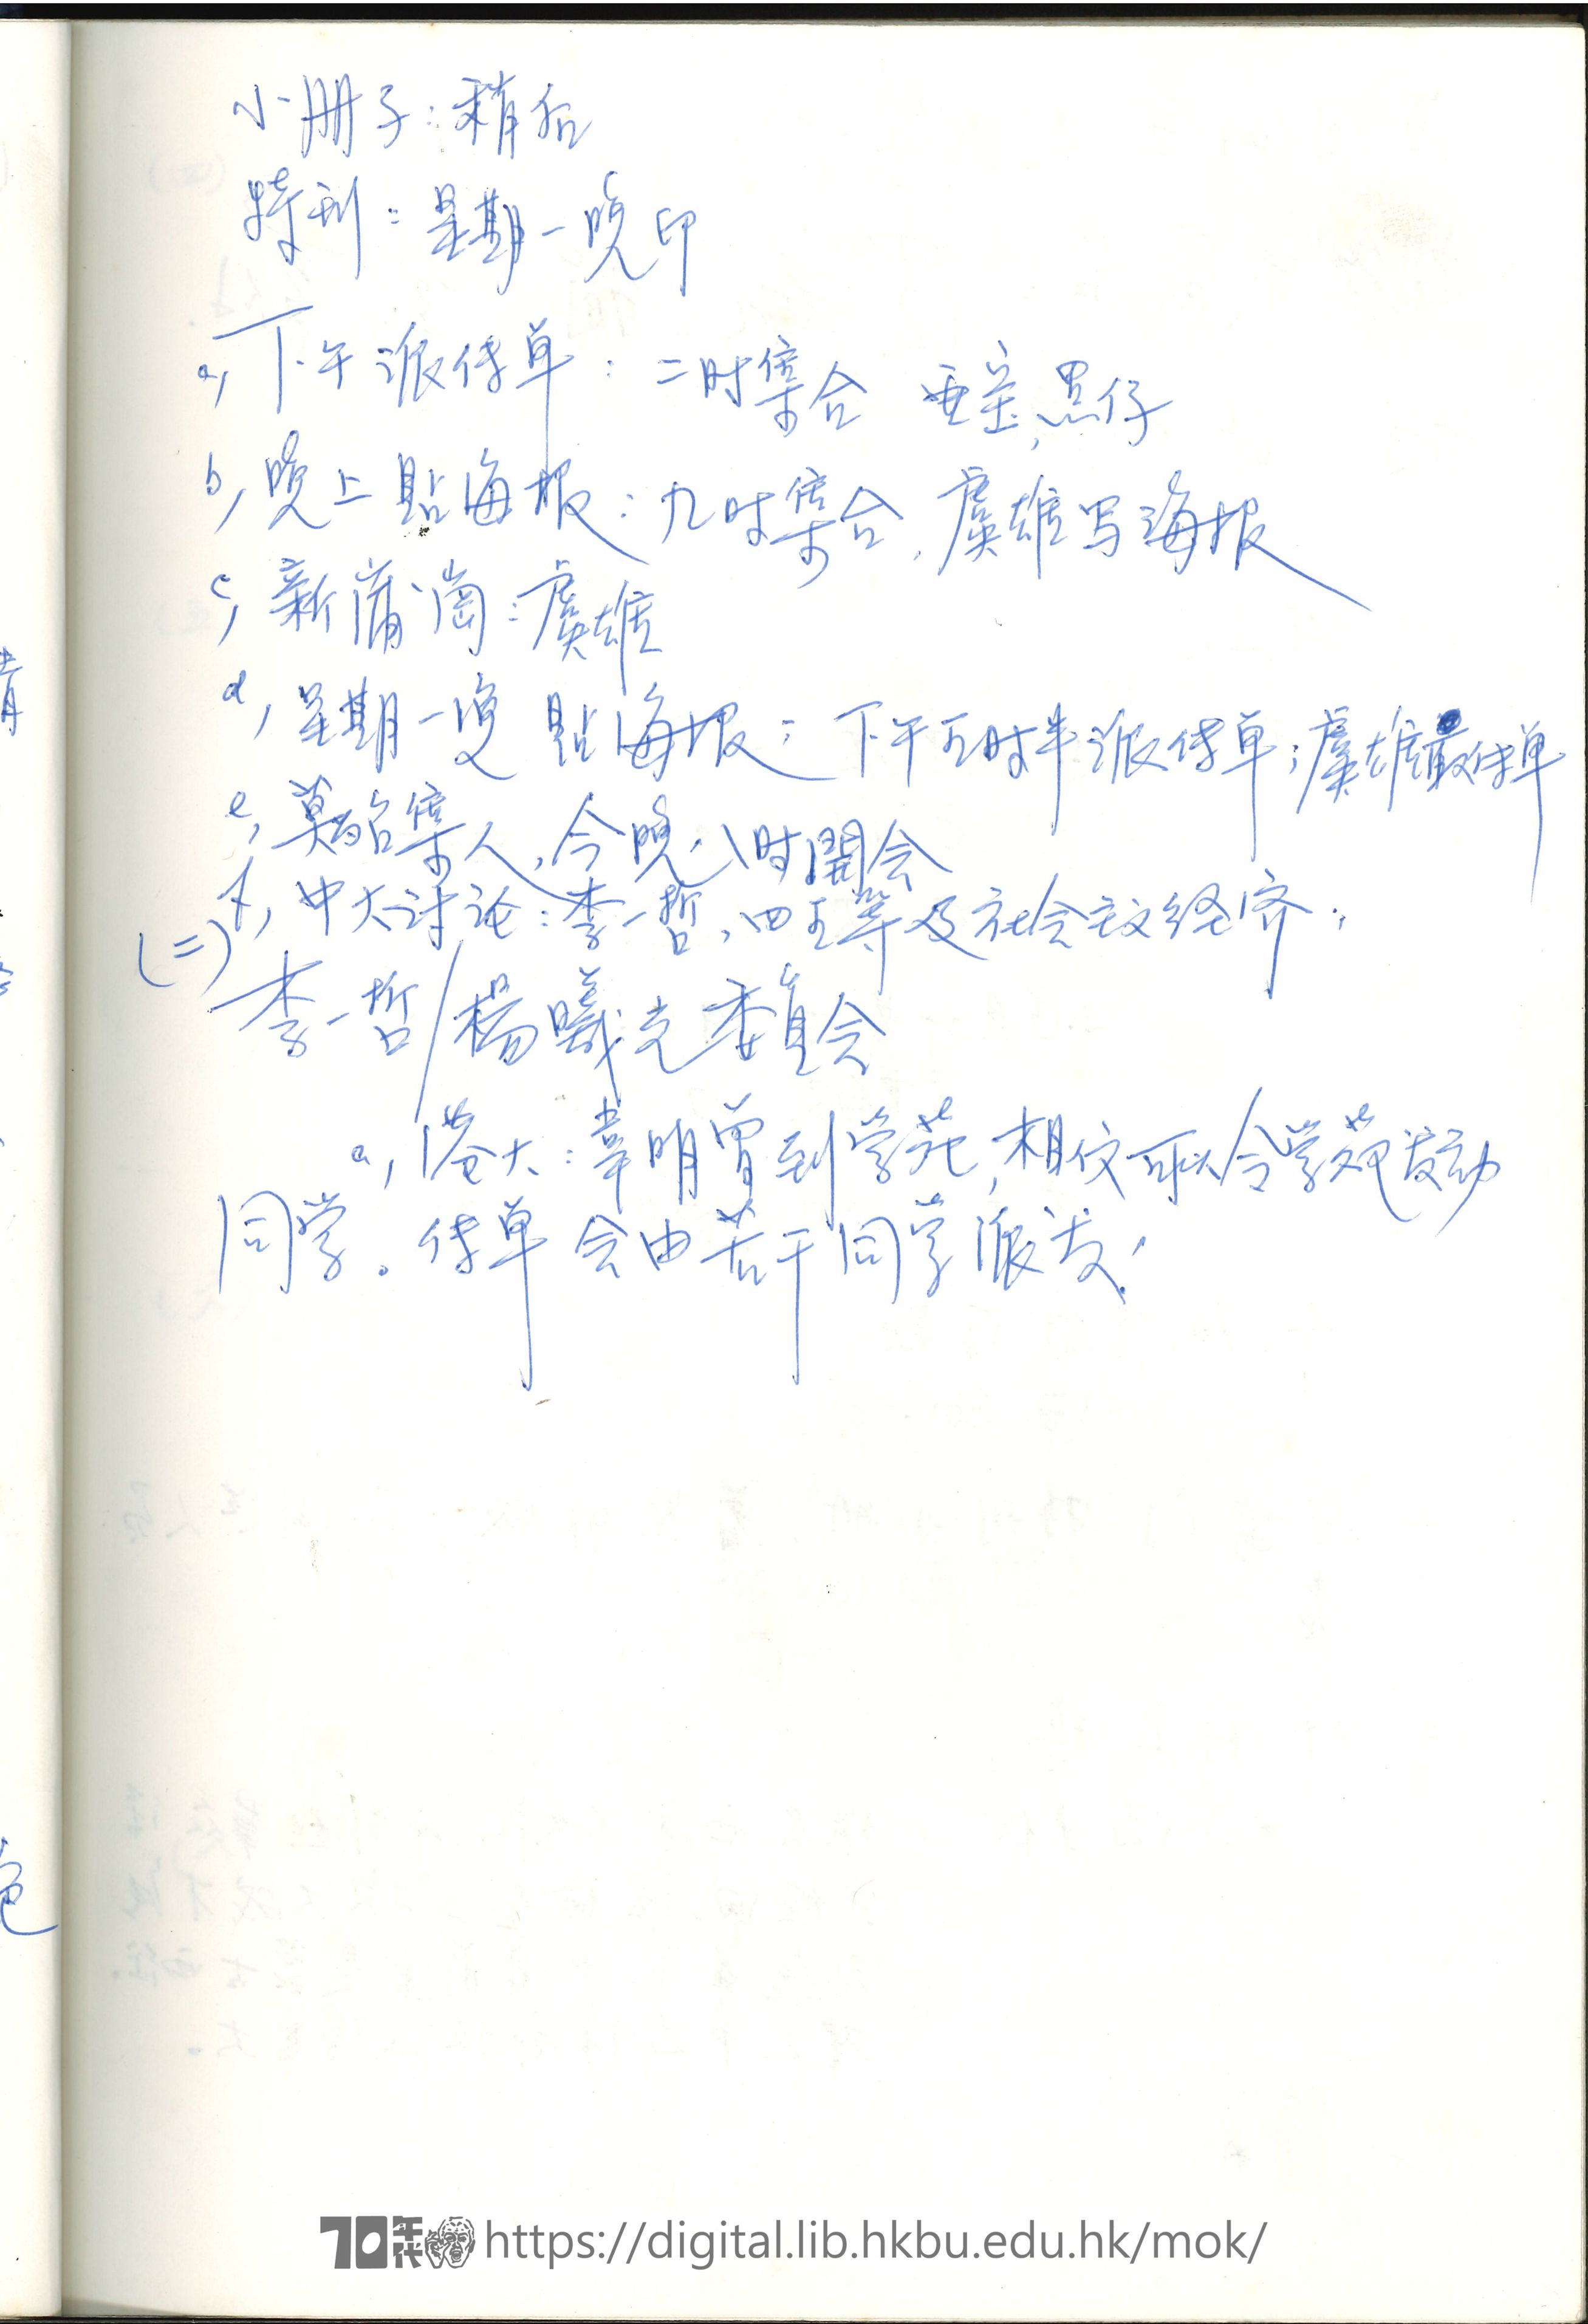 小册子：稍后
特刊：星期一晚印
a, 下午派传单：二时集合 亜金,黑仔
b, 晚上貼海报：九时集合，虞雄写海报
c, 新蒲崗：虞雄
d, 星期一晚 貼海报；下午五时半派传单；虞雄最传单
e, 莫昭集人，今晚八时開会
f, 中大讨论：李一哲、四五等及社会主义经济.
(二)
李一哲/楊曦光委員会
a, 港大：韋明曾到学苑,相信可以令学苑发动
同学。传单会由若干同学派发.
70年代 https://digital.lib.hkbu.edu.hk/mok/